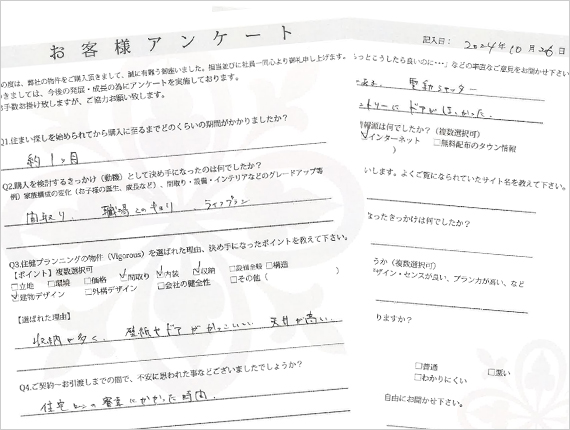 お客様アンケート
の度は、弊社の物件をご購入頂きまして、誠に有難う御座いました。担当並びに社員一同心より御礼申し上げます。
きましては、今後の発展・成長の為にアンケートを実施しております。
お手数お掛け致しますが、ご協力お願い致します。
Q1.住まい探しを始められてから購入に至るまでどのくらいの期間がかかりましたか?
約1ヶ月
Q2.購入を検討するきっかけ(動機)として決め手になったのは何でしたか?
例)家族構成の変化(お子様の誕生、成長など)、間取り・設備・インテリアなどのグレードアップ等
間取り、職場との距離 ライフプラン
Q3.住健プランニングの物件(Vigorous)を選ばれた理由、決め手になったポイントを教えて下さい。
【ポイント】複数選択可
□立地 □環境 □価格 ☑間取り ☑内装 ☑収納 □設備全般 □構造
☑建物デザイン □外構デザイン □会社の健全性 □その他( )
【選ばれた理由】
収納が多く、壁紙やドアがかっこいい 天井が高い
Q4.ご契約〜お引渡しまでの間で、不安に思われた事などございましたでしょうか?
住宅ローンの審査にかかった時間
記入日: 2024年10月26日
っとこうしたら良いのに…」などの率直なご意見をお聞かせ下さい
電動シャッター
ントリーにドアがほしかった。
情報源は何でしたか?(複数選択可)
☑インターネット □無料配布のタウン情報
)
いします。よくご覧になられていたサイト名を教えて下さい。
なったきっかけは何でしたか?
うか(複数選択可)
デザイン・センスが良い、プラン力が高い、など
りますか?
□普通 □悪い
□わかりにくい
自由にお聞かせ下さい。